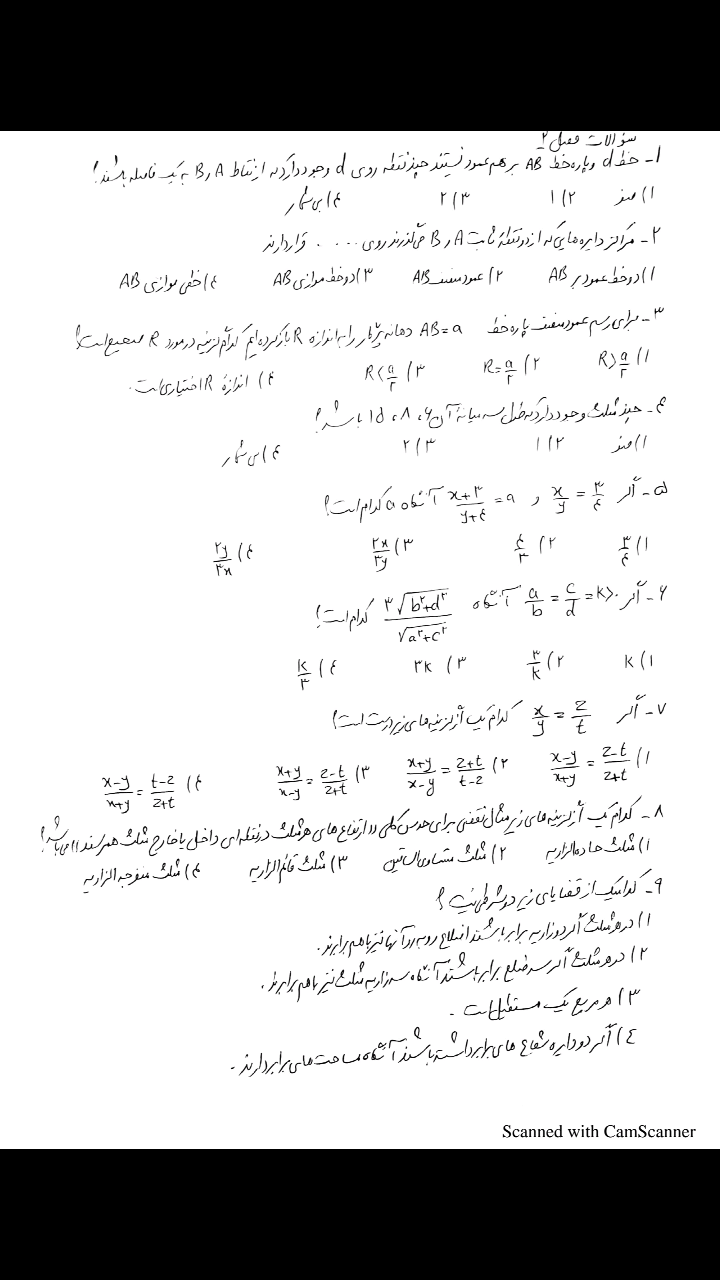 سؤالات فصل ۲
۱- خط d و پاره خط AB بر هم عمود نیستند چند نقطه روی d وجود دارد که از نقاط A و B به یک فاصله باشند؟
۱) صفر ۲) ۱ ۳) ۲ ۴) بی شمار
۲- مراکز دایره هایی که از دو نقطهٔ ثابت A و B می گذرند روی .... قرار دارند
۱) دو خط عمود بر AB ۲) عمود منصف AB ۳) دو خط موازی AB ۴) خطی موازی AB
۳- برای رسم عمود منصف پاره خط AB=a دهانه پرگار را به اندازه R باز کرده ایم کدام گزینه در مورد R صحیح است؟
۱) R>a/۲ ۲) R=a/۲ ۳) R<a/۲ ۴) اندازهٔ R اختیاری است.
۴- چند مثلث وجود دارد که طول سه میانهٔ آن ۶، ۸، ۱۵ باشد؟
۱) صفر ۲) ۱ ۳) ۲ ۴) بی شمار
۵- اگر x/y = ۳/۴ و (x+۳)/(y+۴) = a آنگاه a کدام است؟
۱) ۳/۴ ۲) ۴/۳ ۳) ۲x/۳y ۴) ۲y/۳x
۶- اگر a/b = c/d = k>۰ آنگاه ۳√(b²+d²)/√(a²+c²) کدام است؟
۱) k ۲) ۳/k ۳) ۳k ۴) k/۳
۷- اگر x/y = z/t کدام یک از گزینه های زیر درست است؟
۱) (x-y)/(x+y) = (z-t)/(z+t) ۲) (x+y)/(x-y) = (z+t)/(t-z) ۳) (x+y)/(x-y) = (z-t)/(z+t) ۴) (x-y)/(x+y) = (t-z)/(z+t)
۸- کدام یک از گزینه های زیر مثال نقضی برای حدس کلی ((ارتفاع های هر مثلث در نقطه ای داخل یا خارج مثلث همرسند)) می باشد؟
۱) مثلث حاده الزاویه ۲) مثلث متساوی الساقین ۳) مثلث قائم الزاویه ۴) مثلث منفرجه الزاویه
۹- کدامیک از قضایای زیر دو شرطی نیست؟
۱) در هر مثلث اگر دو زاویه برابر باشند اضلاع روبه رو آنها نیز با هم برابرند.
۲) در هر مثلث اگر سه ضلع برابر باشند آنگاه سه زاویه مثلث نیز با هم برابرند.
۳) هر مربع یک مستطیل است.
۴) اگر دو دایره شعاع های برابر داشته باشند آنگاه مساحت های برابر دارند.
Scanned with CamScanner